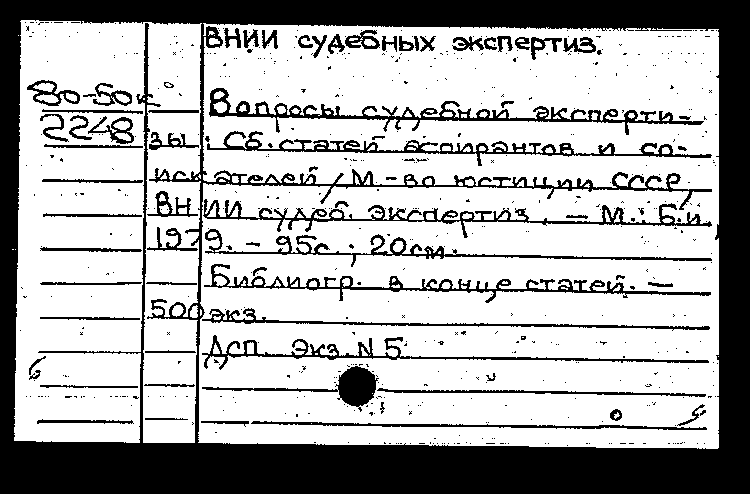 ВНИИ судебных экспертиз.
80-50к
Вопросы судебной эксперти-
2248
зы : Сб. статей аспирантов и со-
искателей / М-во юстиции СССР,
ВНИИ судеб. экспертиз. — М. : Б.и.,
1979. - 95с ; 20см.
Библиогр. в конце статей. —
500 экз.
Дсп. Экз. N 5